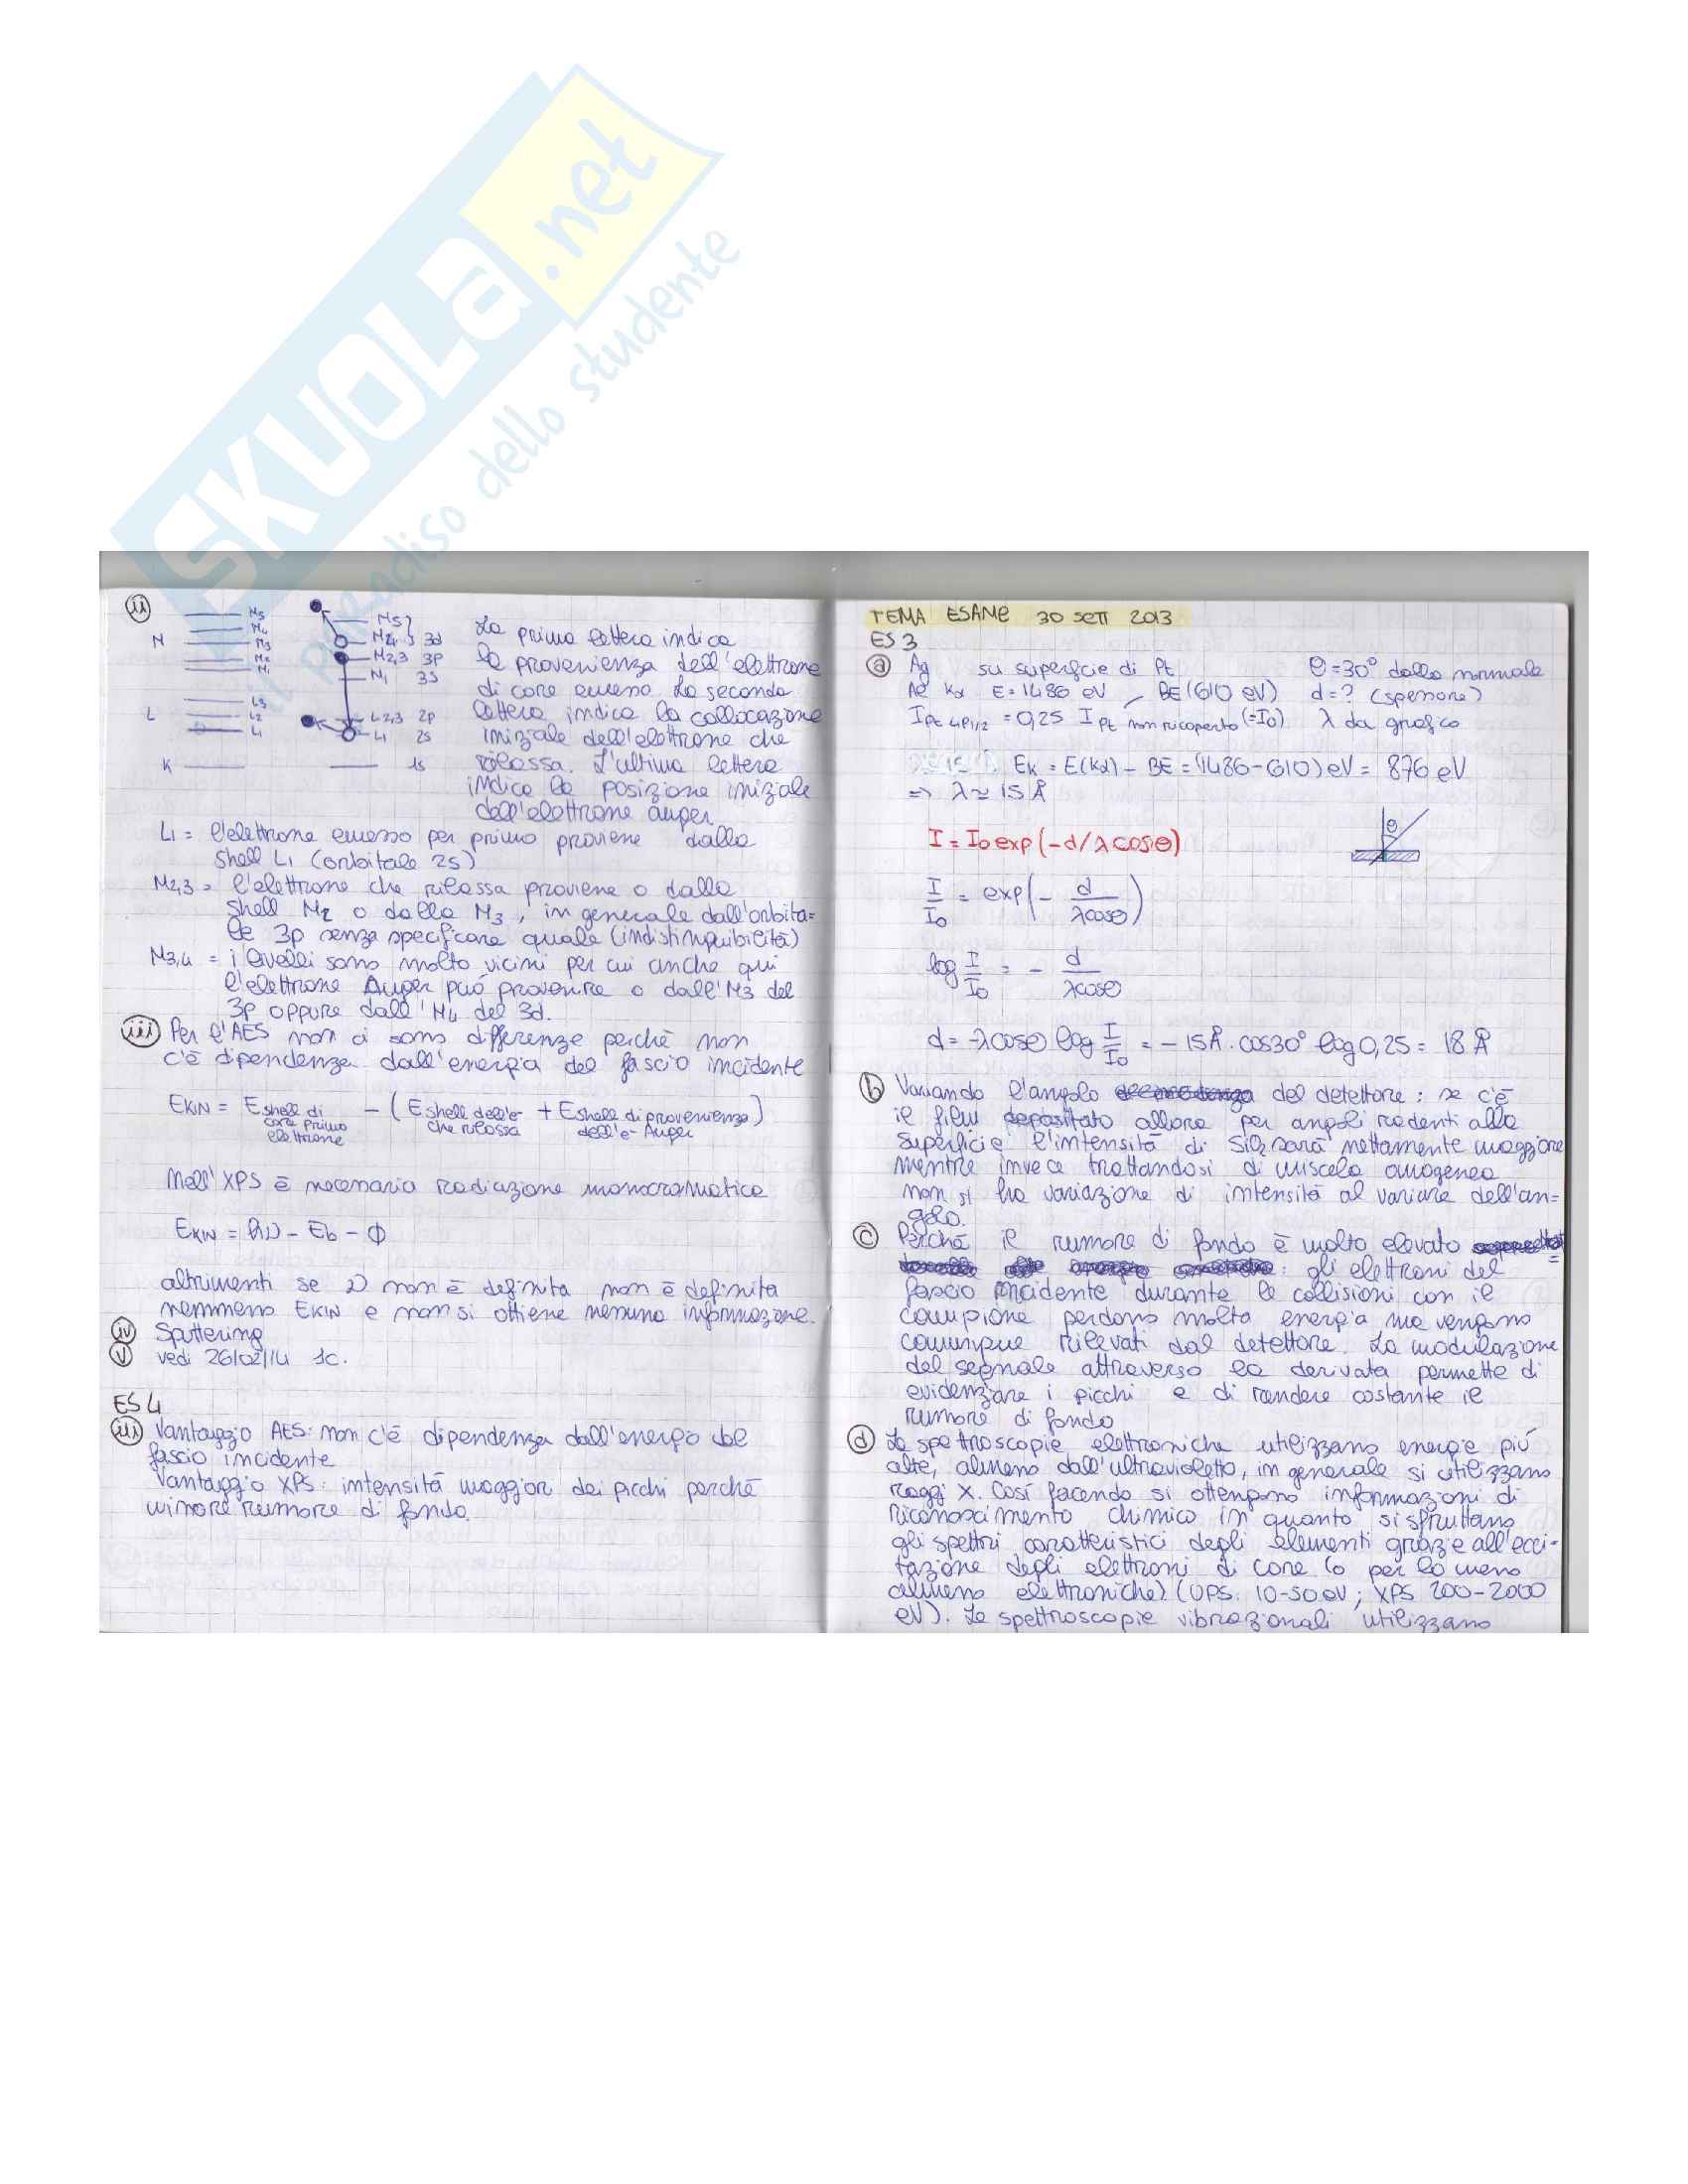 SKUOLA.net
il paradiso dello studente
ii
M5
M4
M
M3
M2
M1
L3
L
L2
L1
K
M5
M4 3d
M2,3 3p
M1 3s
L2,3 2p
L1 2s
1s
La prima lettera indica
la provenienza dell'elettrone
di core emesso. La seconda
lettera indica la collocazione
iniziale dell'elettrone che
rilassa. L'ultima lettera
indica la posizione iniziale
dell'elettrone auger.
L1 = l'elettrone emesso per primo proviene dalla
shell L1 (orbitale 2s)
M2,3 = l'elettrone che rilassa proviene o dalla
shell M2 o dalla M3, in generale dall'orbita=
le 3p senza specificare quale (indistinguibilità)
M3,4 = i livelli sono molto vicini per cui anche qui
l'elettrone Auger può provenire o dall'M3 del
3p oppure dall'M4 del 3d.
iii Per l'AES non ci sono differenze perchè non
c'è dipendenza dall'energia del fascio incidente
EKIN = E shell di core primo elettrone - (E shell dell'e- che rilassa + E shell di provenienza dell'e- Auger)
Nell'XPS è necessaria radiazione monocromatica
EKIN = hν - Eb - ϕ
altrimenti se ν non è definita non è definita
nemmeno EKIN e non si ottiene nessuna informazione.
iv Sputtering
v vedi 26/02/14 1c.
ES 4
iii Vantaggio AES: non c'è dipendenza dall'energia del
fascio incidente
Vantaggio XPS: intensità maggiori dei picchi perchè
minore rumore di fondo.
TEMA ESAME 30 SETT 2013
ES 3
a Ag su superficie di Pt θ=30° dalla normale
Al Kα E=1486 eV BE (610 eV) d=? (spessore)
I Pt 4p1/2 = 0,25 I Pt non ricoperto (=I0) λ da grafico
EK = E(Kα) - BE = (1486-610) eV = 876 eV
⇒ λ ≃ 15 Å
I = I0 exp(-d/λcosθ)
θ
I/I0 = exp(- d/λcosθ)
log I/I0 = - d/λcosθ
d = -λcosθ log I/I0 = -15Å · cos30° log 0,25 = 18 Å
b Variando l'angolo del detettore: se c'è
il film depositato allora per angoli radenti alla
superficie l'intensità di SiO2 sarà nettamente maggiore
mentre invece trattandosi di miscela omogenea
non si ha variazione di intensità al variare dell'an=
golo.
c Perchè il rumore di fondo è molto elevato
: gli elettroni del
fascio incidente durante le collisioni con il
campione perdono molta energia ma vengono
comunque rilevati dal detettore. La modulazione
del segnale attraverso la derivata permette di
evidenziare i picchi e di rendere costante il
rumore di fondo
d Le spettroscopie elettroniche utilizzano energie più
alte, almeno dall'ultravioletto, in generale si utilizzano
raggi X. Così facendo si ottengono informazioni di
riconoscimento chimico in quanto si sfruttano
gli spettri caratteristici degli elementi grazie all'ecci-
tazione degli elettroni di core (o per lo meno
almeno elettroniche) (UPS: 10-50 eV; XPS 200-2000
eV). Le spettroscopie vibrazionali utilizzano